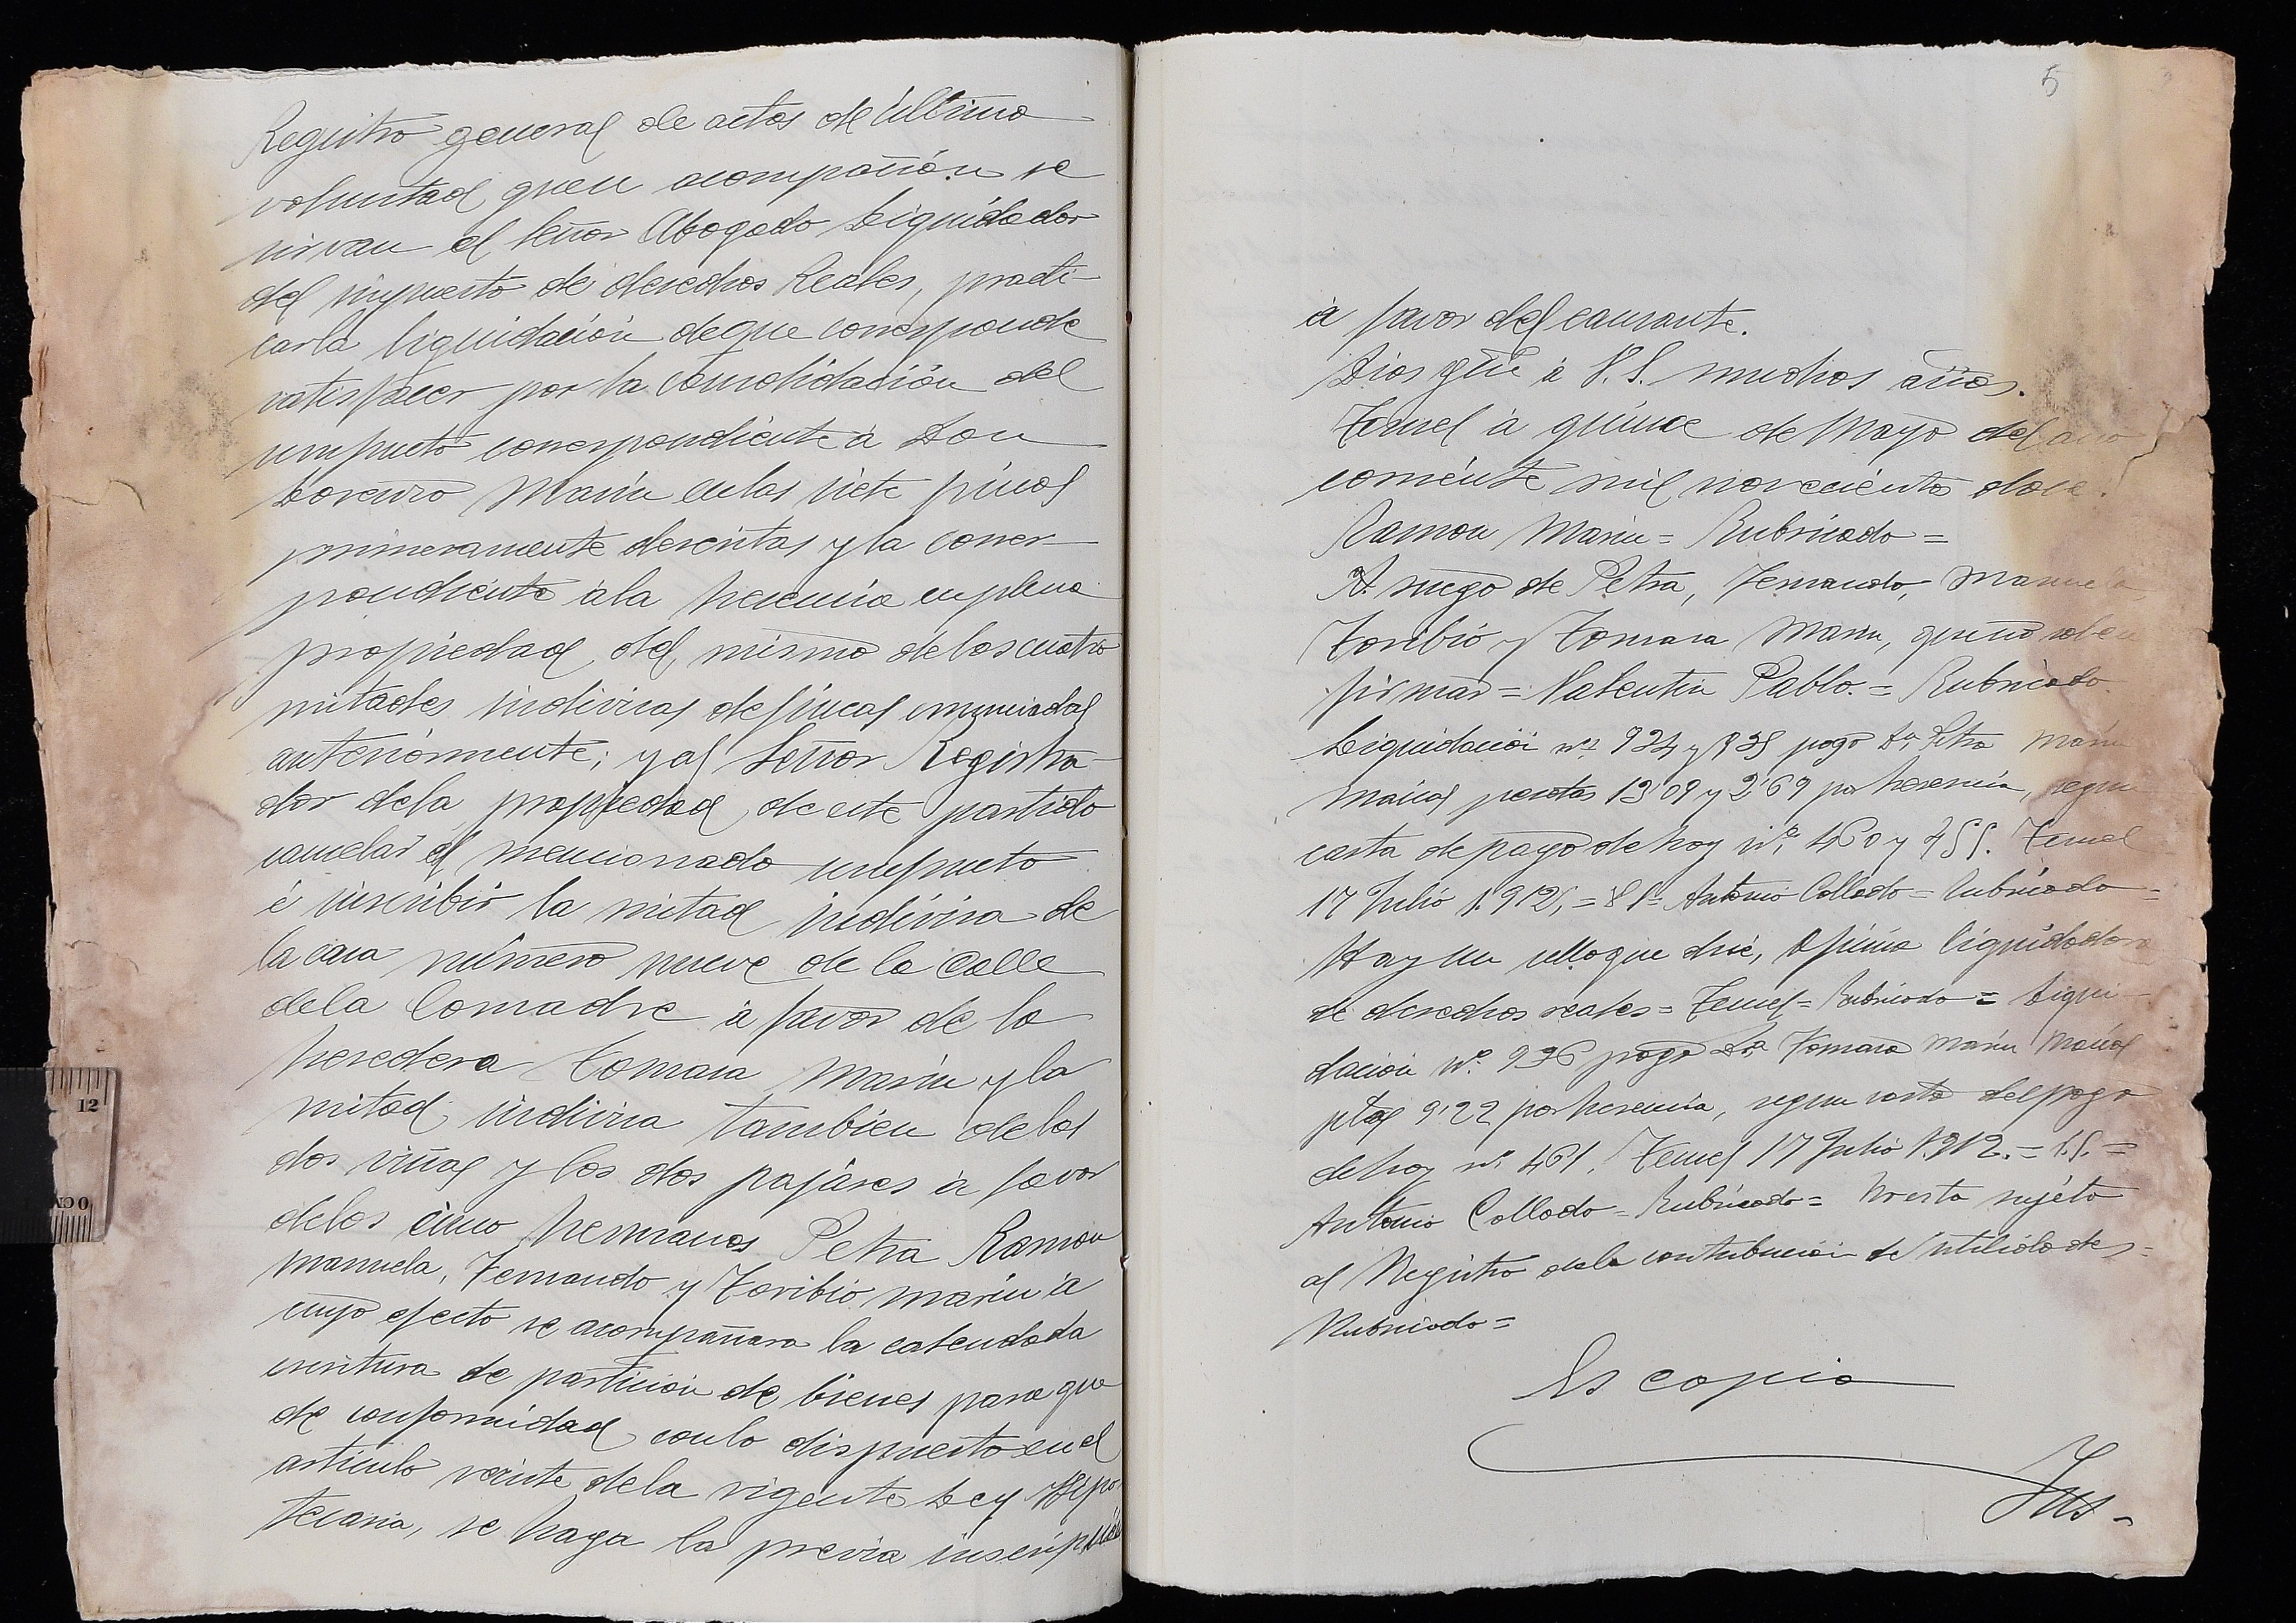 Registro general de actos de última
voluntad que se acompañan se
sirvan el señor Abogado Liquidador
del impuesto de derechos Reales, practi-
car la liquidación de que corresponde
satisfacer por la consolidación del
usufructo correspondiente á Don
Lorenzo Marin en las siete fincas
primeramente descritas y la corres-
pondiente á la herencia en plena
propiedad, del mismo de las cuatro
mitades indivisas de fincas enunciadas
anteriormente; y al Señor Registra-
dor de la propiedad de este partido
cancelar el mencionado usufructo
é inscribir la mitad indivisa de
la casa número nueve de la Calle
de la Comadre á favor de la
heredera Tomasa Marin y la
mitad indivisa tambien de las
dos viñas y los dos pajares á favor
de los cinco hermanos Petra Ramon
Manuela, Fernando y Toribio Marin á
cuyo efecto se acompañara la calendada
escritura de particion de bienes para que
de conformidad con lo dispuesto en el
articulo veinte de la vigente Ley Hipo-
tecaria, se haga la previa inscripción
5
á favor del causante.
Dios gue á V.S. muchos años.
Teruel á quince de Mayo del año
corriente mil novecientos doce.
Ramon Marin = Rubricado =
A ruego de Petra, Fernando, Manuela
Toribio y Tomasa Marin, que no saben
firmar = Valentin Pablo. = Rubricado
Liquidación nos 934 y 935 pago Da Petra Marin
Mañas pesetas 13'09 y 2'69 por herencia, segun
carta de pago de hoy no 460 y 455. Teruel
17 Julio 1.912, = El = Antonio Collado = Rubricado =
Hay un sello que dice, Oficina liquidadora
de derechos reales = Teruel = Rubricado = Liqui-
dación nº 936 pago Dª Tomasa Marin Mañas
ptas 9'22 por herencia, segun carta de pago
de hoy nº 461. Teruel 17 Julio 1.912. =
Antonio Collado = Rubricado = No esta sujeto
al Registro de la contribución de utilidades =
Rubricado =
Es copia